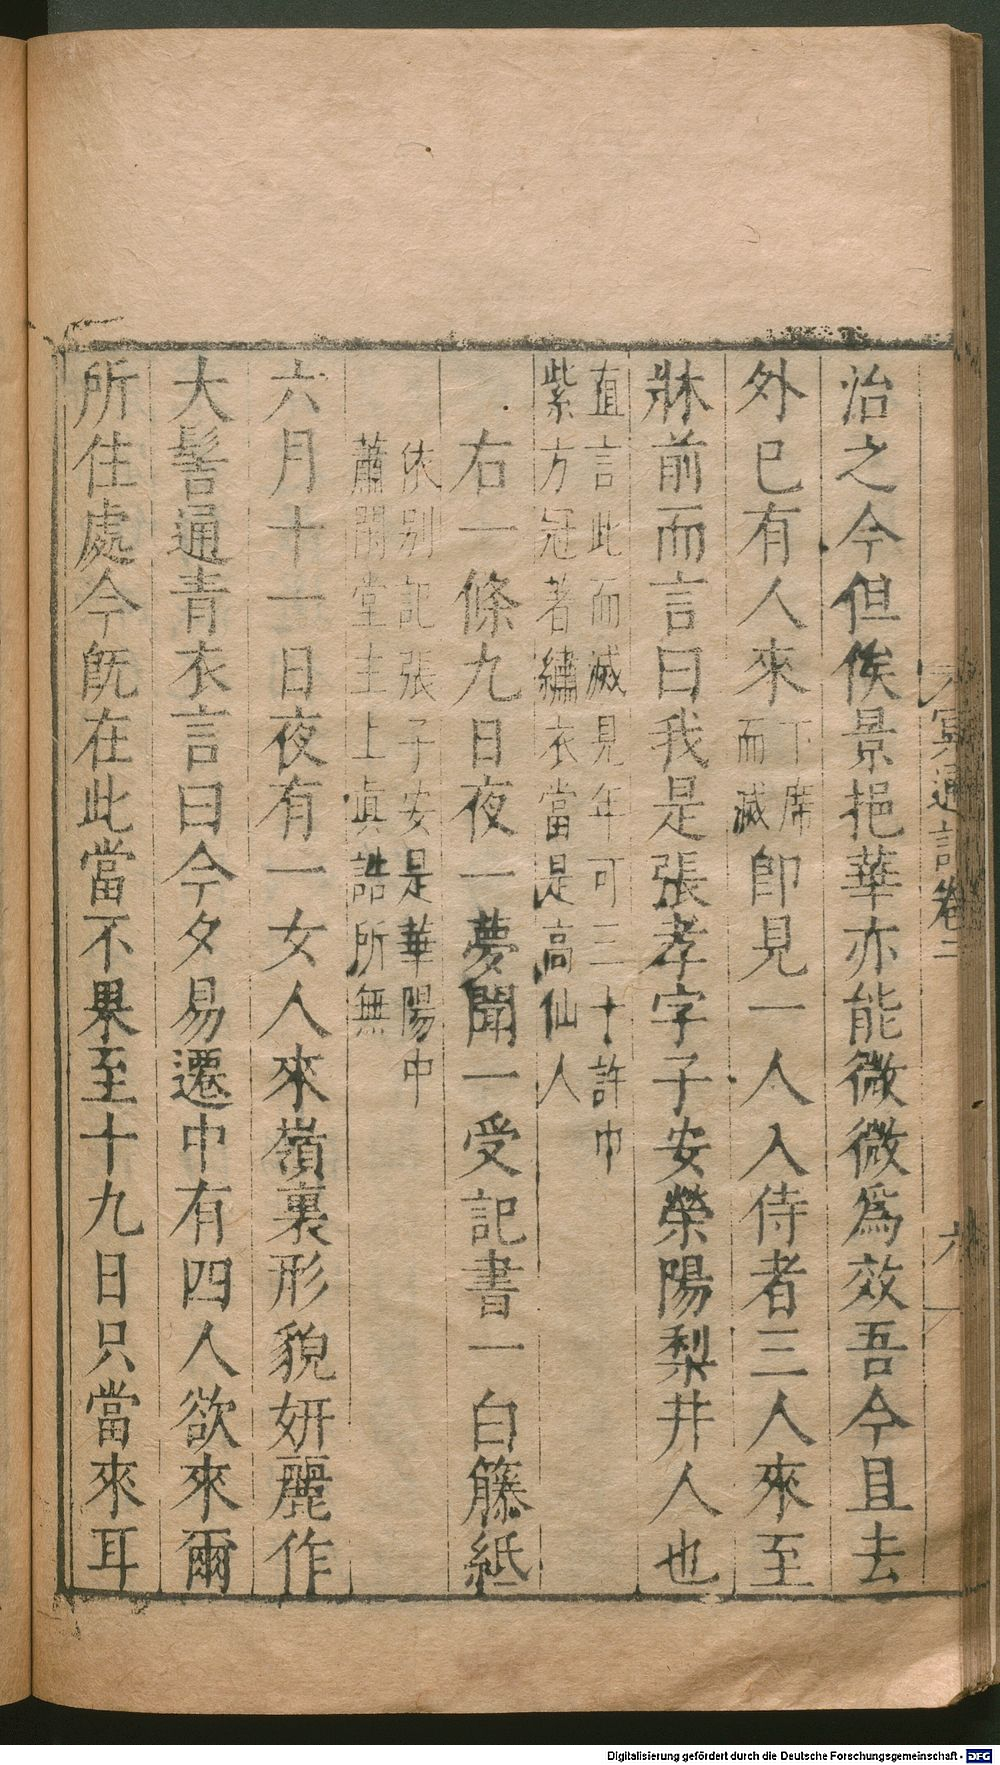 冥通記卷二
六
治之今但俟景挹華亦能微微爲效吾今且去
外已有人來下席而滅卽見一人入侍者三人來至
牀前而言曰我是張孝字子安滎陽梨井人也
直言此而滅見年可三十許巾
紫方冠著繡衣當是高仙人
右一條九日夜一夢聞一受記書一白籐紙
依別記張子安是華陽中
蕭閑堂主上眞誥所無
六月十一日夜有一女人來嶺裏形貌妍麗作
大髻通青衣言曰今夕易遷中有四人欲來爾
所住處今旣在此當不果至十九日只當來耳
Digitalisierung gefördert durch die Deutsche Forschungsgemeinschaft - DFG